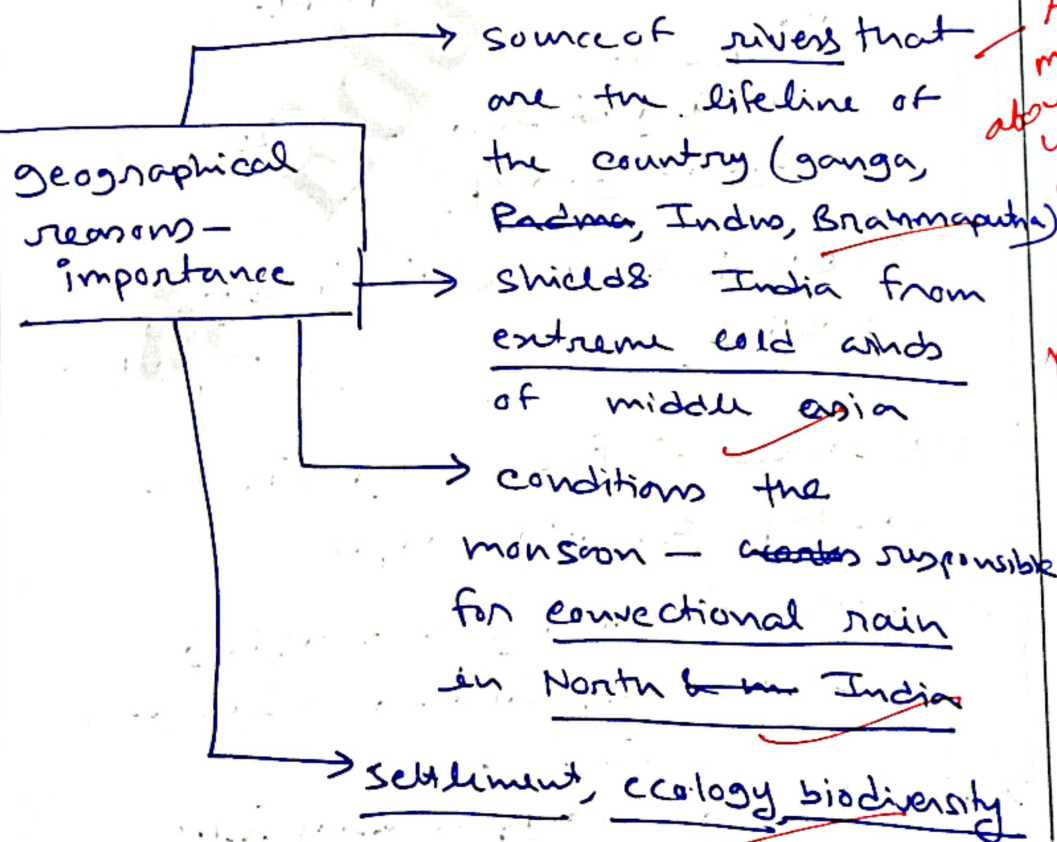 geographical
reasons-
importance
→ source of rivers that
are the lifeline of
the country (ganga,
Padma, Indus, Brahmaputra)
→ shields India from
extreme cold winds
of middle asia
→ conditions the
monsoon - responsible
for convectional rain
in North India
→ settliment, ecology biodiversity
abo